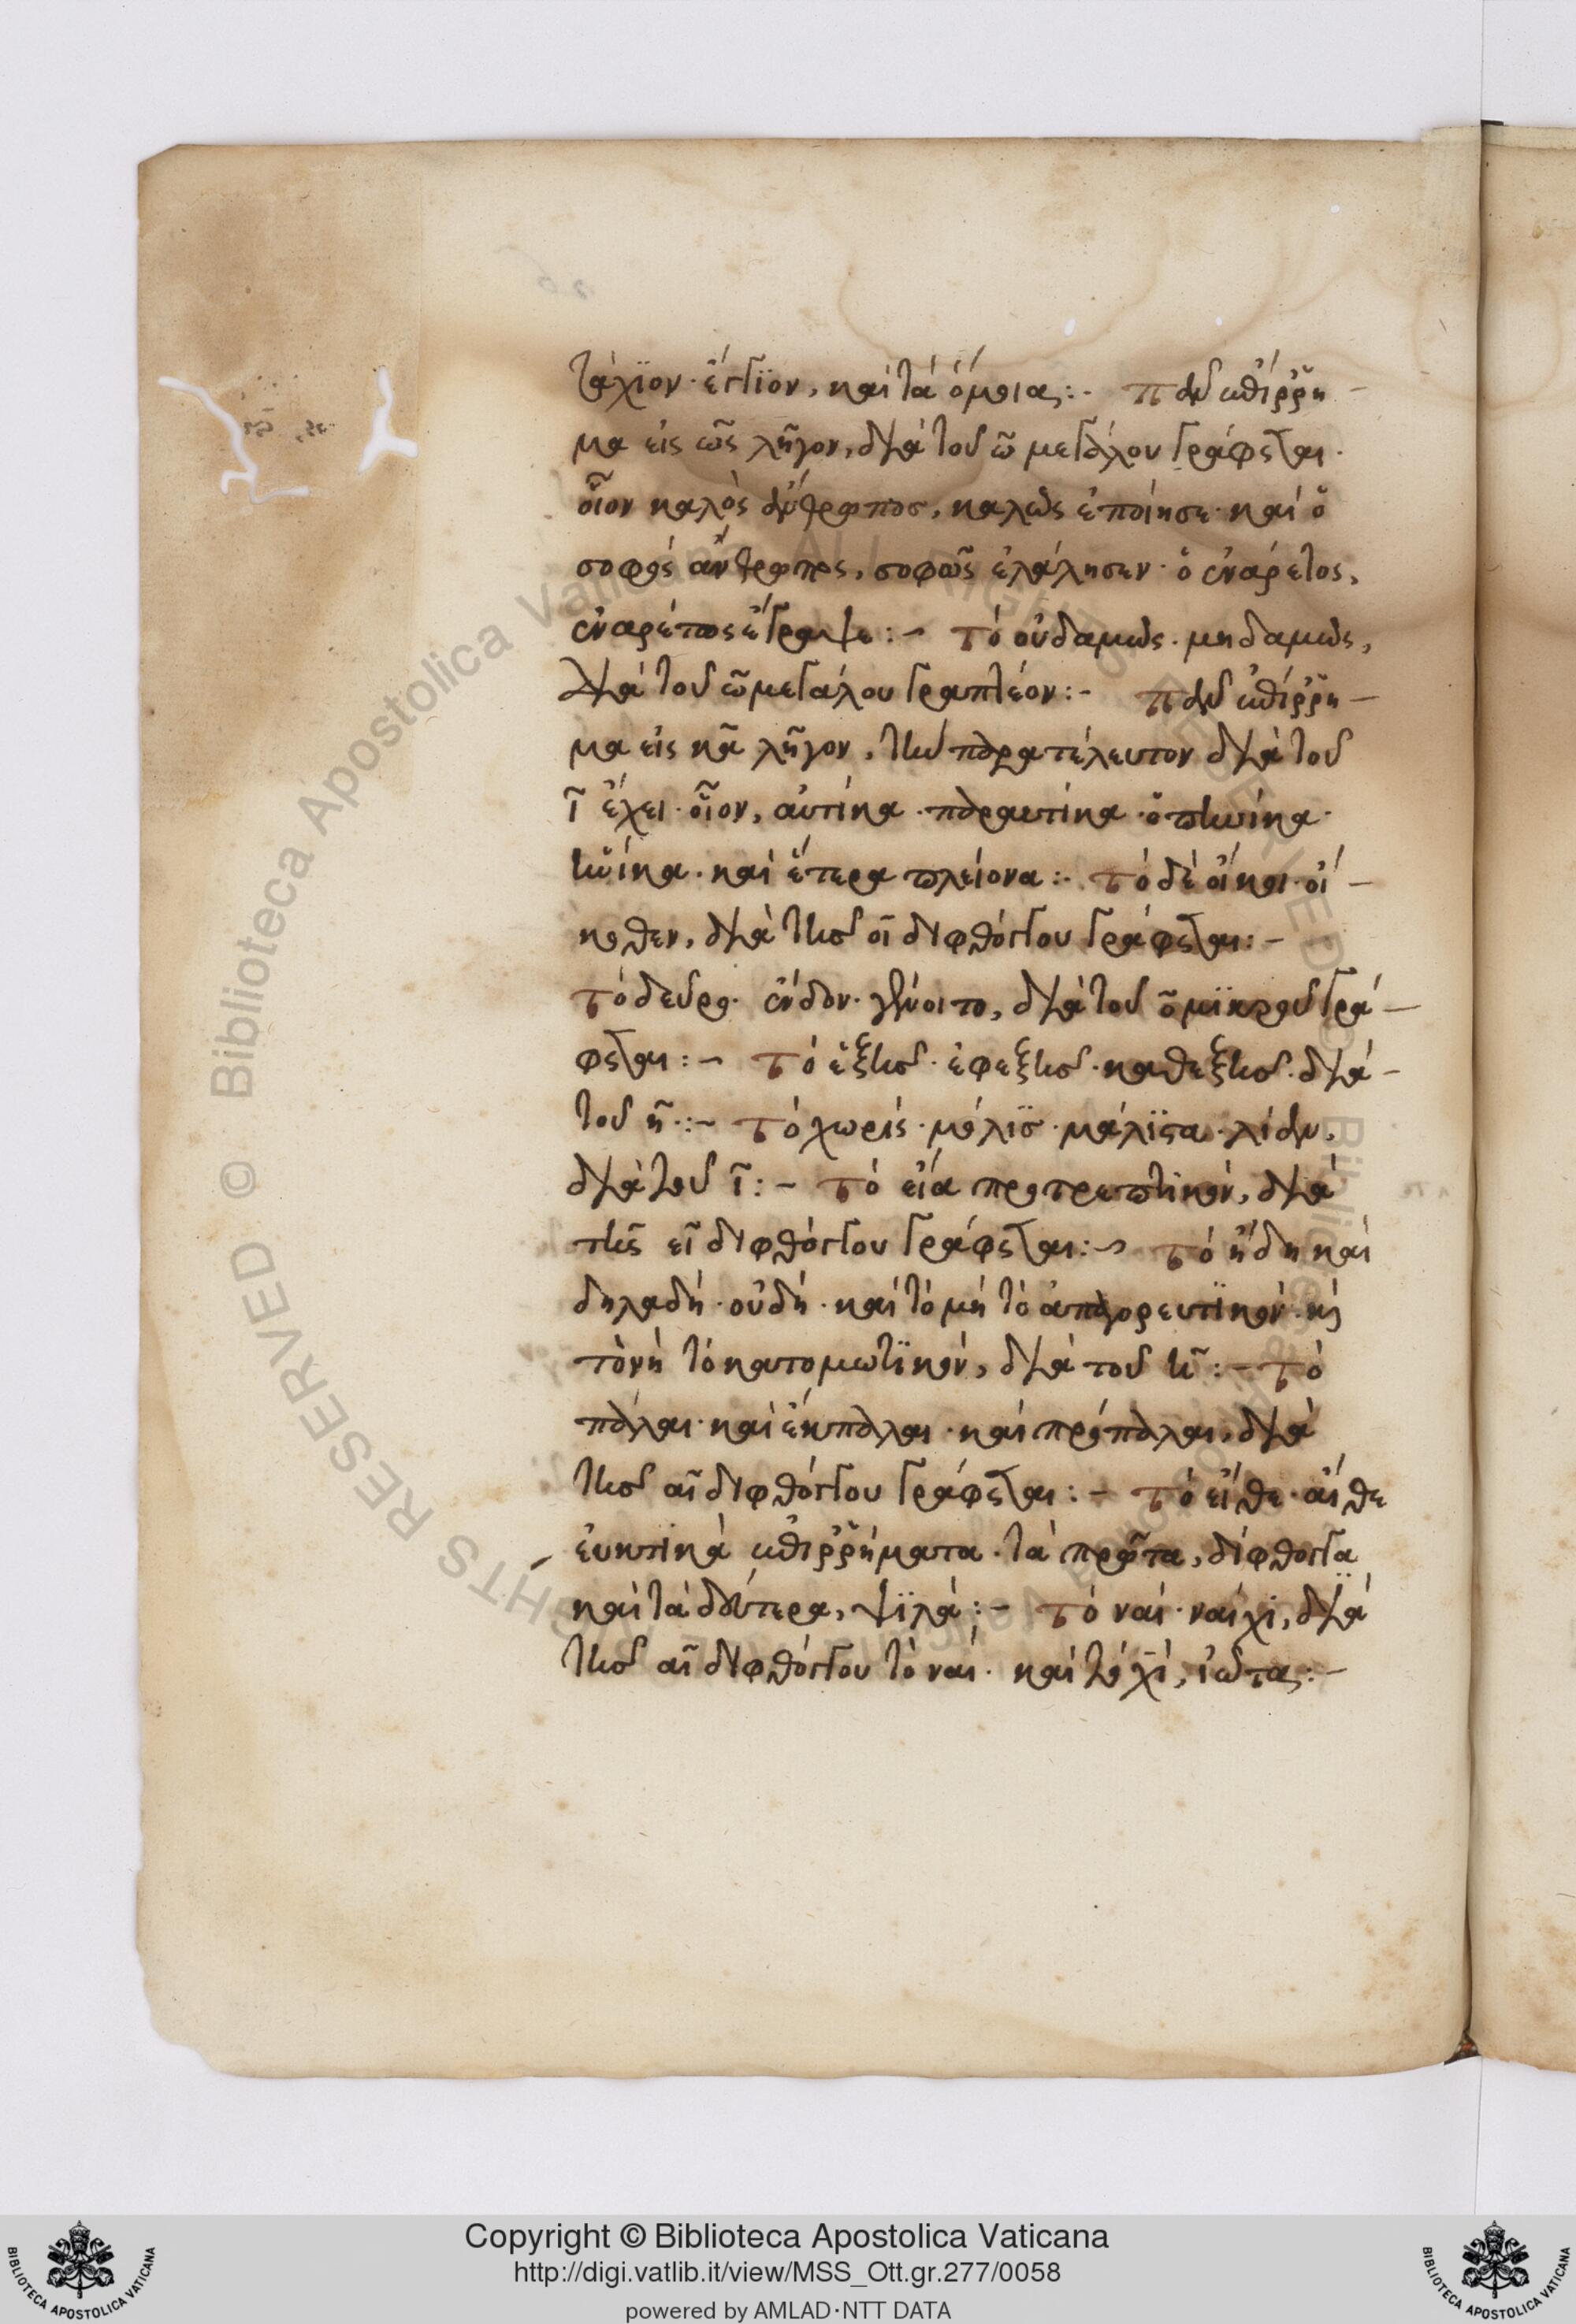 τάχϊον· ἔγγϊον, καὶ τὰ ὅμοια:- πᾶν ἐπίρρη-
μα εἰς ως λῆγον, διὰ τοῦ ω μεγάλου γράφεται·
οἷον καλὸς ἄνθρωπος, καλῶς ἐποίησε· καὶ ὁ
σοφὸς ἄνθρωπος, σοφῶς ἐλάλησεν· ὁ ἐνάρετος,
ἐναρέτως ἔγραψε:- τὸ οὐδαμῶς· μηδαμῶς,
διὰ τοῦ ω μεγάλου γραπτέον:- πᾶν ἐπίρρη-
μα εἰς κα λῆγον, τὴν παρατέλευτον διὰ τοῦ
ι ἔχει· οἷον, αὐτίκα· παραυτίκα· ὁπηνίκα·
τηνίκα· καὶ ἕτερα πλείονα:- τὸ δὲ οἴκοι· οἴ-
κοθεν, διὰ τῆς οι διφθόγγου γράφεται:-
τὸ δεῦρο· ἔνδον· γένοιτο, διὰ τοῦ ο μϊκροῦ γρά-
φεται:- τὸ ἑξῆς· ἐφεξῆς· καθεξῆς· διὰ
τοῦ η:- τὸ χωρίς· μόλϊς· μάλϊστα· λίαν,
διὰ τοῦ ι:- τὸ εἶα προτρεπτικόν, διὰ
τῆς ει διφθόγγου γράφεται:- τὸ ἤδη καὶ
δηλαδή· οὐδή· καὶ τὸ μή τὸ ἀπαγορευτϊκόν· καὶ
τὸ νή τὸ κατομωτϊκόν, διὰ τοῦ η:- τὸ
πάλαι· καὶ ἔκπαλαι· καὶ πρόπαλαι, διὰ
τῆς αι διφθόγγου γράφεται:- τὸ εἴθε· αἴθε
εὐκτικὰ ἐπιρρήματα· τὰ πρῶτα, δίφθογγα
καὶ τὰ δεύτερα, ψϊλά:- τὸ ναί· ναίχϊ, διὰ
τῆς αι διφθόγγου τὸ ναί· καὶ τὸ χὶ, ἰῶτα:-
Copyright © Biblioteca Apostolica Vaticana
http://digi.vatlib.it/view/MSS_Ott.gr.277/0058
powered by AMLAD·NTT DATA
BIBLIOTECA APOSTOLICA VATICANA
BIBLIOTECA APOSTOLICA VATICANA